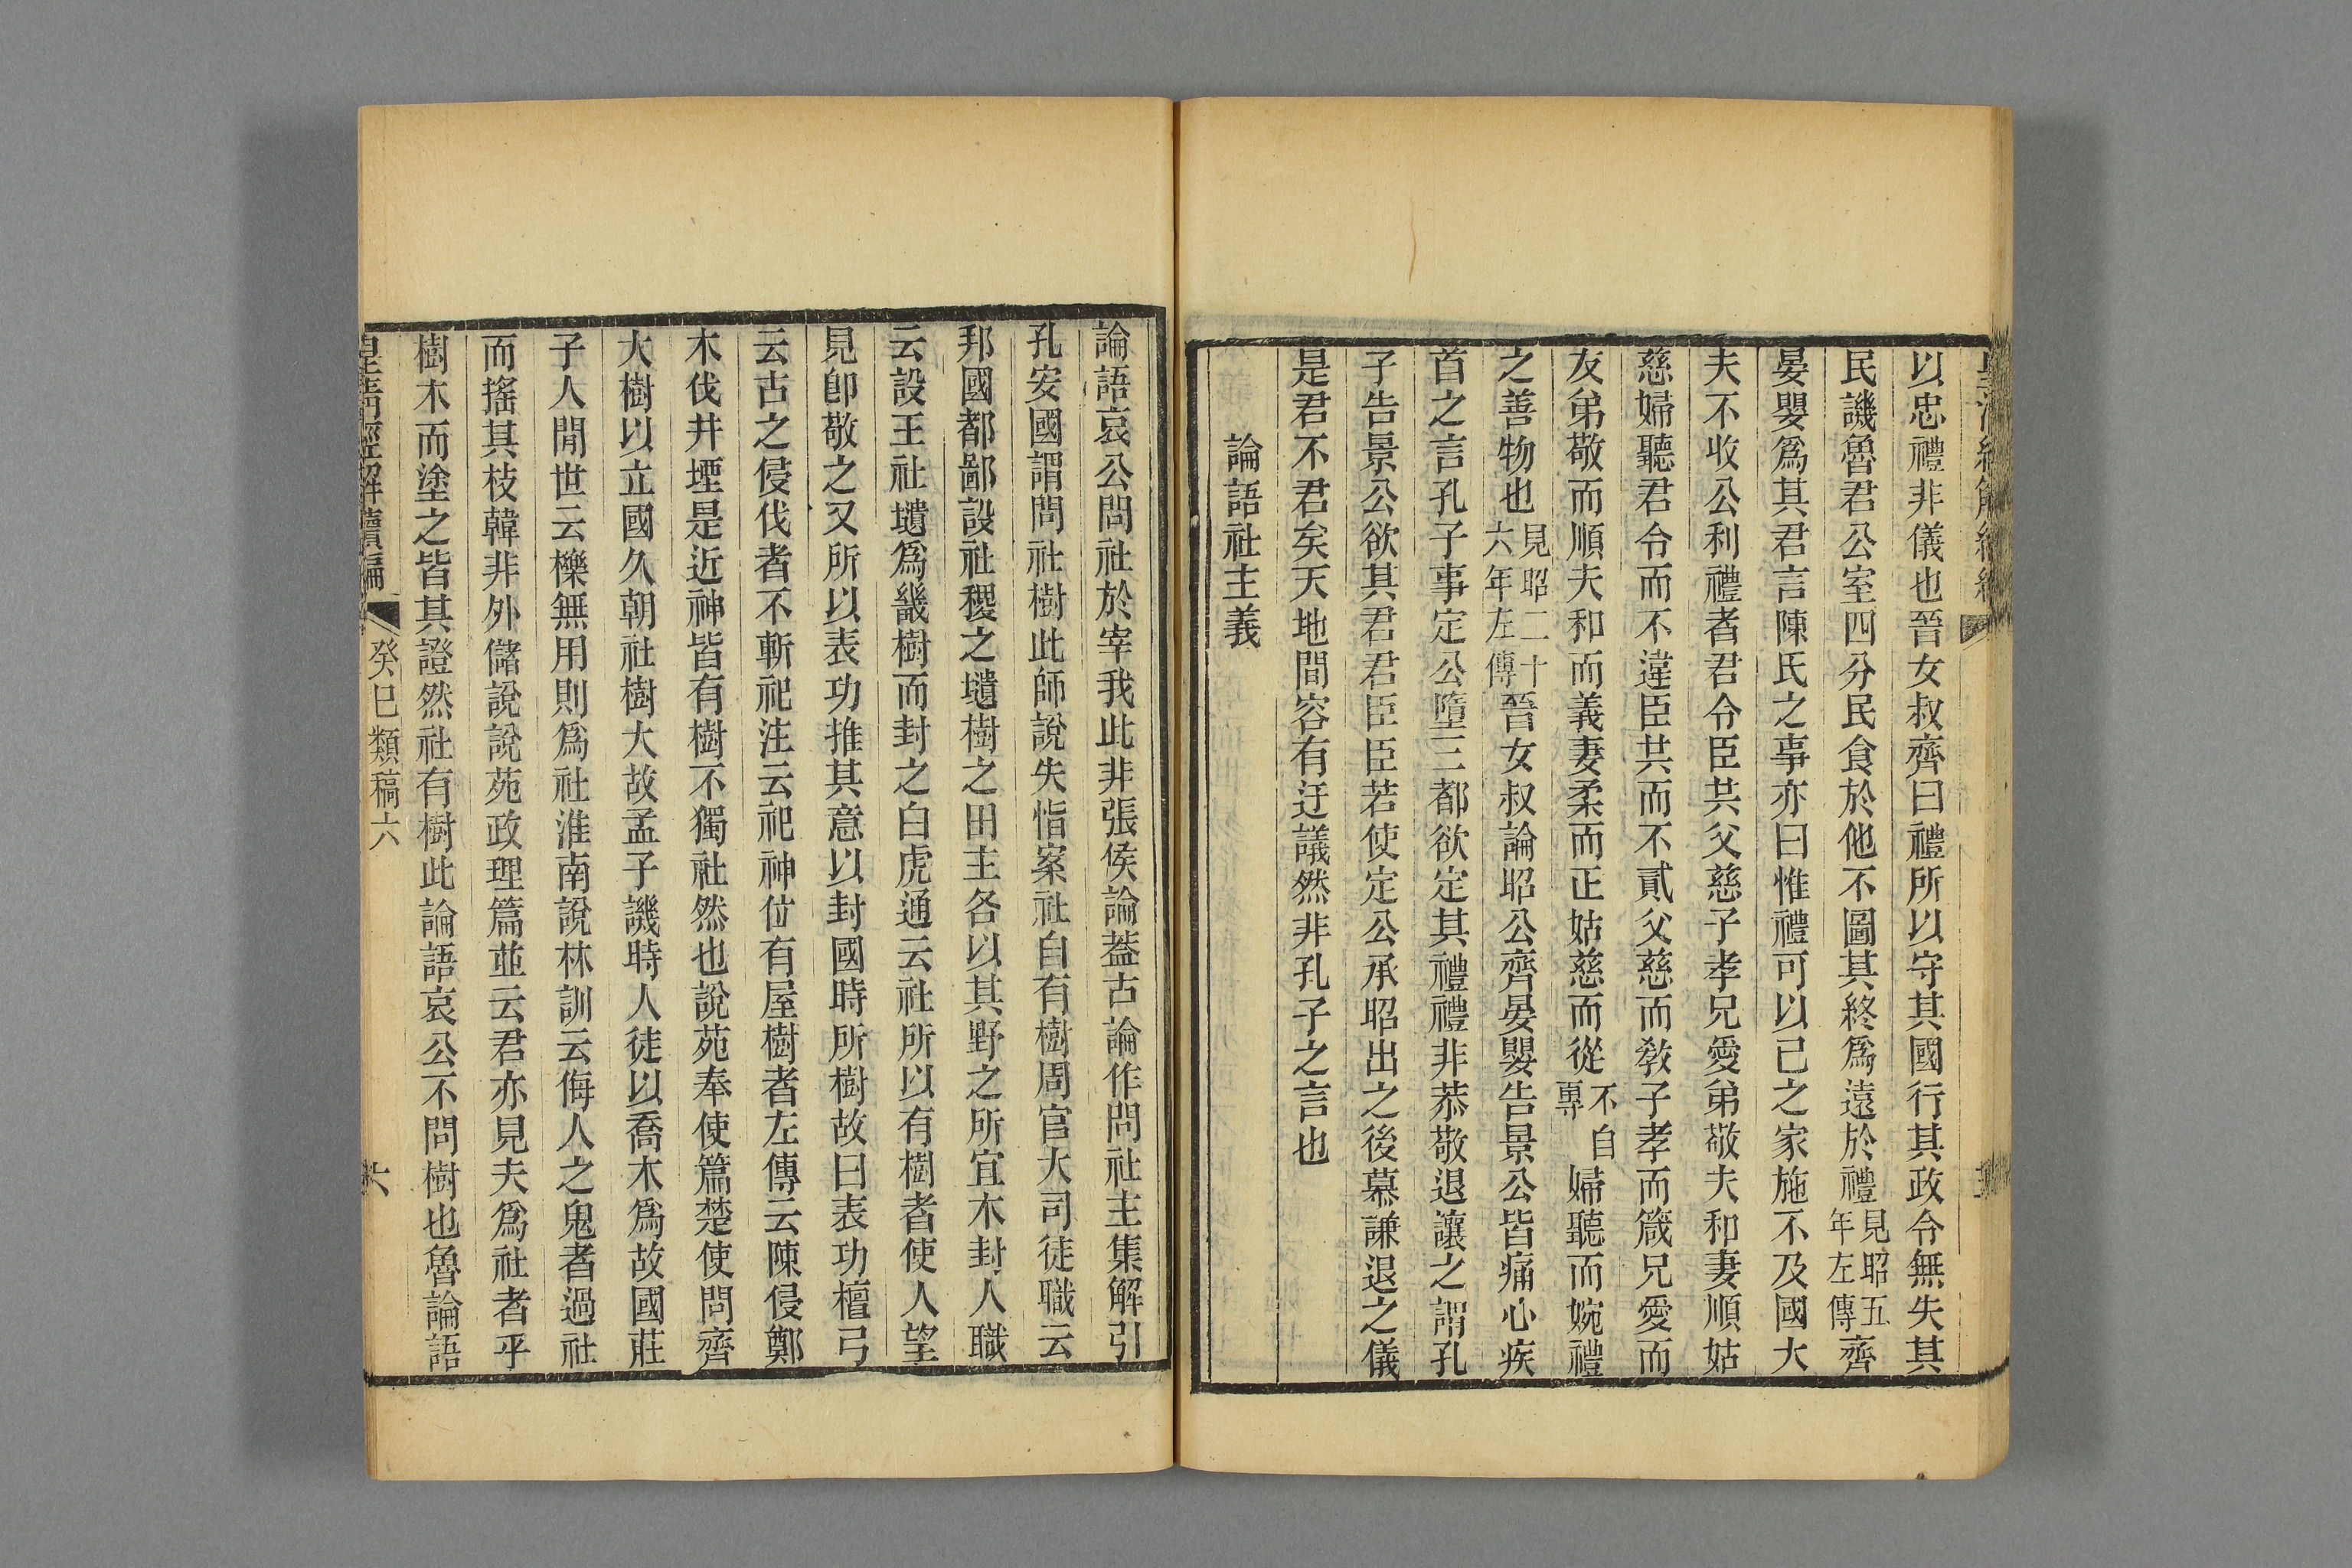 以忠禮非儀也晉女叔齊曰禮所以守其國行其政令無失其
民譏魯君公室四分民食於他不圖其終爲遠於禮見昭五年左傳齊
晏嬰爲其君言陳氏之事亦曰惟禮可以已之家施不及國大
夫不收公利禮者君令臣共父慈子孝兄愛弟敬夫和妻順姑
慈婦聽君令而不違臣共而不貳父慈而敎子孝而箴兄愛而
友弟敬而順夫和而義妻柔而正姑慈而從不自專婦聽而婉禮
之善物也見昭二十六年左傳晉女叔論昭公齊晏嬰告景公皆痛心疾
首之言孔子事定公墮三都欲定其禮禮非恭敬退讓之謂孔
子告景公欲其君君臣臣若使定公承昭出之後慕謙退之儀
是君不君矣天地間容有迂議然非孔子之言也
論語社主義
論語哀公問社於宰我此非張侯論蓋古論作問社主集解引
孔安國謂問社樹此師說失恉案社自有樹周官大司徒職云
邦國都鄙設社稷之壝樹之田主各以其野之所宜木封人職
云設王社壝爲畿樹而封之白虎通云社所以有樹者使人望
見卽敬之又所以表功推其意以封國時所樹故曰表功檀弓
云古之侵伐者不斬祀注云祀神位有屋樹者左傳云陳侵鄭
木伐井堙是近神皆有樹不獨社然也說苑奉使篇楚使問齊
大樹以立國久朝社樹大故孟子譏時人徒以喬木爲故國莊
子人閒世云櫟無用則爲社淮南說林訓云侮人之鬼者過社
而搖其枝韓非外儲說說苑政理篇並云君亦見夫爲社者乎
樹木而塗之皆其證然社有樹此論語哀公不問樹也魯論語
皇清經解續編 癸巳類稿六 六